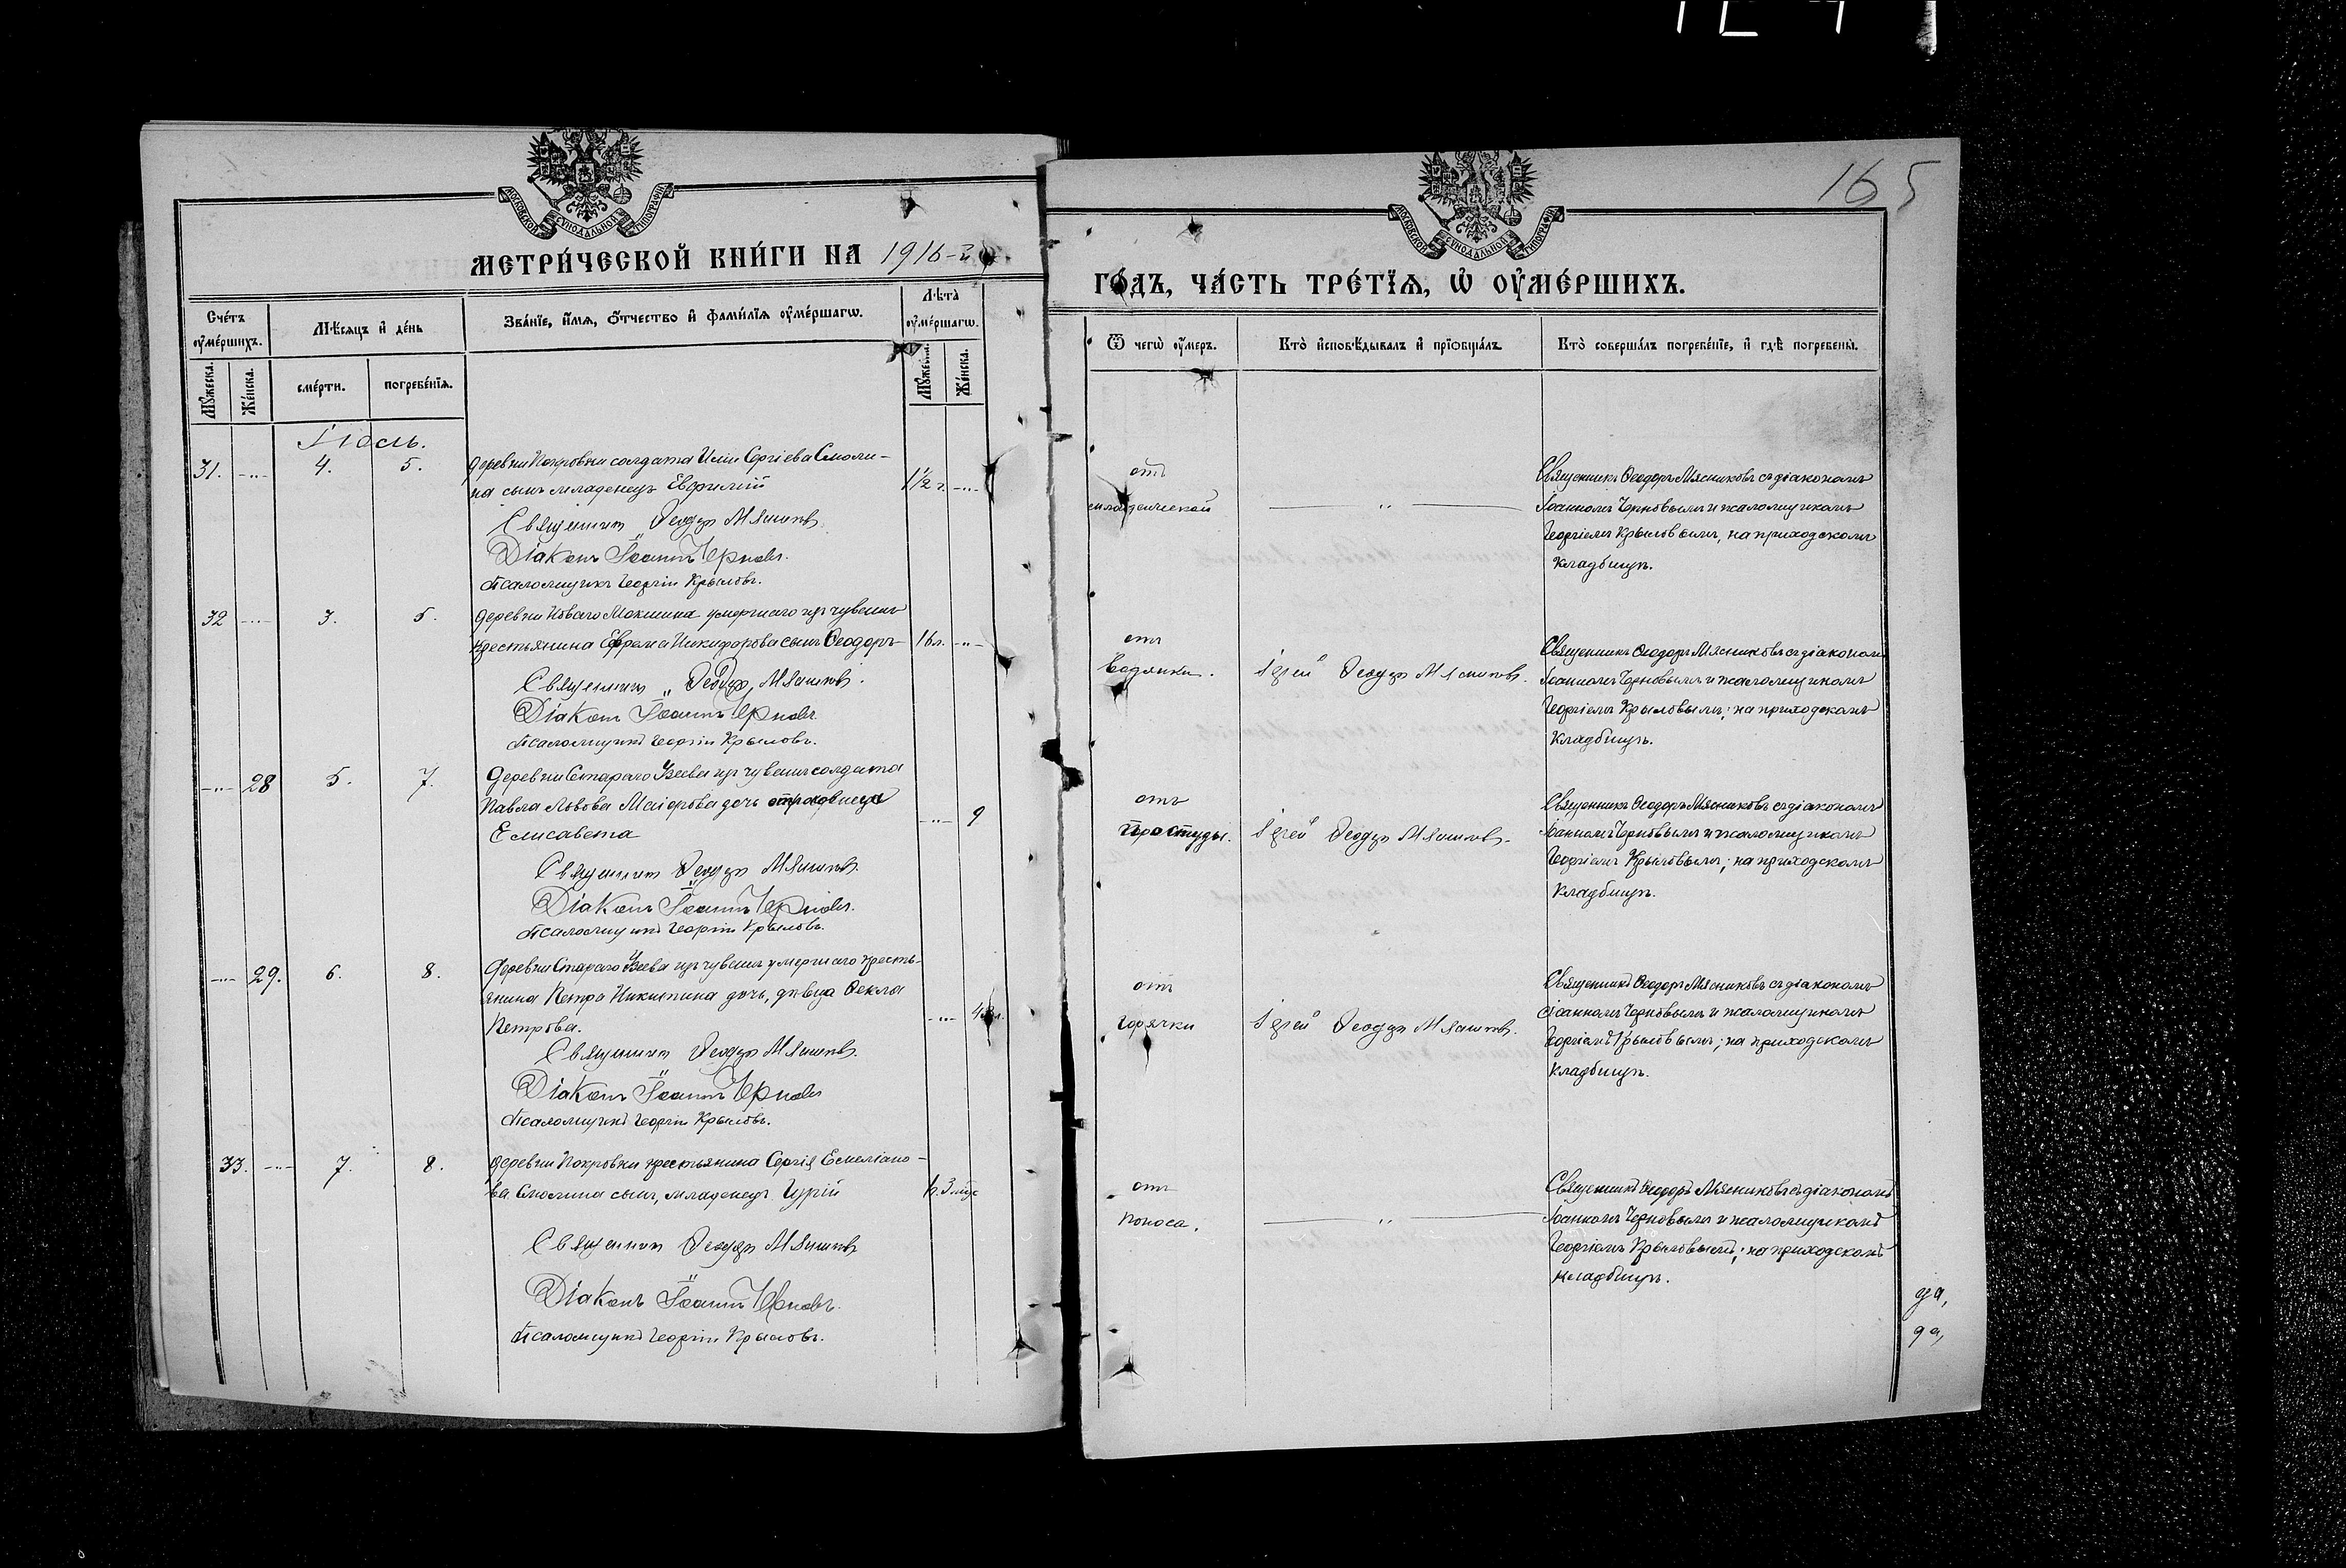 165
МОСКОВСКОЙ СѴНОДАЛЬНОЙ ТИПОГРАФІИ
МОСКОВСКОЙ СѴНОДАЛЬНОЙ ТИПОГРАФІИ
МЕТРИ́ЧЕСКОЙ КНИ́ГИ НА 1916-й
ГО́ДЪ, ЧА́СТЬ ТРЕ́ТЇѦ, Ѡ҆ ОУ҆МЕ́РШИХЪ.
Сче́тъ оу҆ме́ршихъ.
Мѣ́сѧцъ и҆ де́нь
Зва́нїе, и҆́мѧ, ѻ҆́тчество и҆ фами́лїѧ оу҆ме́ршагѡ.
Лѣ́та оу҆ме́ршагѡ.
Ѿ чегѡ̀ оу҆́меръ.
Кто̀ и҆сповѣ́дывалъ и҆ прїѡбща́лъ.
Кто̀ соверша́лъ погребе́нїе, и҆ гдѣ̀ погребены̀.
Мꙋ́жеска. Же́нска.
сме́рти. погребе́нїѧ.
Мꙋ́жеска. Же́нска.
Іюль.
31. -„- 4. 5. деревни Покровки солдата Иліи Сергіева Смоли-
на сынъ младенецъ Евфимій 1½ г. -„-
Священникъ Ѳеодоръ Мясниковъ.
Діаконъ Іоаннъ Черновъ.
Псаломщикъ Георгій Крыловъ.
отъ
— „ —
Священникъ Ѳеодоръ Мясниковъ съ діакономъ
Іоанномъ Черновымъ и псаломщикомъ
Георгіемъ Крыловымъ, на приходскомъ
кладбищѣ.
32 -„- 3. 5. деревни Новаго Мокшина умершаго изъ чувашъ
крестьянина Ефрема Никифорова сынъ Ѳеодоръ 16 л. -„-
Священникъ Ѳеодоръ Мясниковъ.
Діаконъ Іоаннъ Черновъ.
Псаломщикъ Георгій Крыловъ.
отъ
водянки.
Іерей Ѳеодоръ Мясниковъ.
Священникъ Ѳеодоръ Мясниковъ съ діакономъ
Іоанномъ Черновымъ и псаломщикомъ
Георгіемъ Крыловымъ; на приходскомъ
кладбищѣ.
-„- 28 5. 7. деревни Стараго Узеева изъ чувашъ солдата
Павла Львова Маіорова дочь отроковица
Елисавета -„- 9
Священникъ Ѳеодоръ Мясниковъ.
Діаконъ Іоаннъ Черновъ.
Псаломщикъ Георгій Крыловъ.
отъ
простуды.
Іерей Ѳеодоръ Мясниковъ.
Священникъ Ѳеодоръ Мясниковъ съ діакономъ
Іоанномъ Черновымъ и псаломщикомъ
Георгіемъ Крыловымъ; на приходскомъ
кладбищѣ.
-„- 29. 6. 8. деревни Стараго Узеева изъ чувашъ умершаго кресть-
янина Петра Никитина дочь, дѣвица Ѳекла
Петрова. -„-
Священникъ Ѳеодоръ Мясниковъ.
Діаконъ Іоаннъ Черновъ
Псаломщикъ Георгій Крыловъ.
отъ
горячки
Іерей Ѳеодоръ Мясниковъ.
Священникъ Ѳеодоръ Мясниковъ съ діакономъ
Іоанномъ Черновымъ и псаломщикомъ
Георгіемъ Крыловымъ; на приходскомъ
кладбищѣ.
33. -„- 7. 8. деревни Покровки крестьянина Сергія Емеліано-
ва Смолина сынъ, младенецъ Гурій
Священникъ Ѳеодоръ Мясниковъ
Діаконъ Іоаннъ Черновъ.
Псаломщикъ Георгій Крыловъ.
отъ
поноса.
— „ —
Священникъ Ѳеодоръ Мясниковъ съ діакономъ
Іоанномъ Черновымъ и псаломщикомъ
Георгіемъ Крыловымъ; на приходскомъ
кладбищѣ.
да,
да,